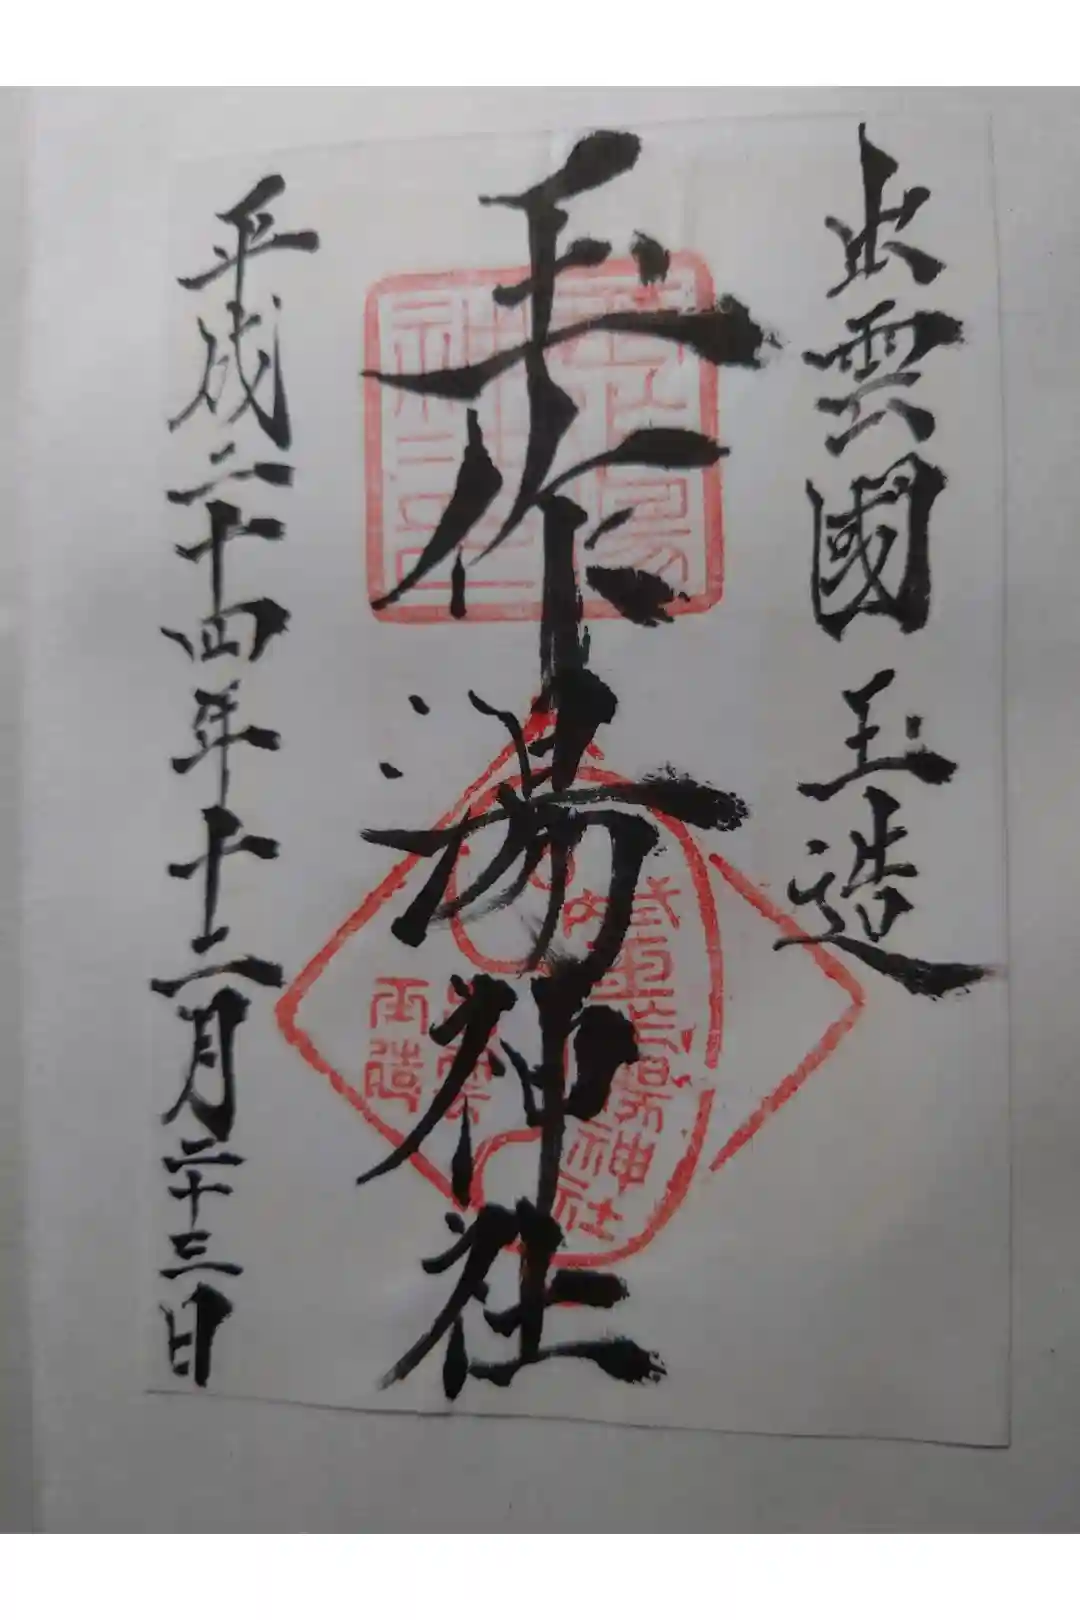 出雲國 玉造
玉作湯神社
平成二十四年十二月二十三日